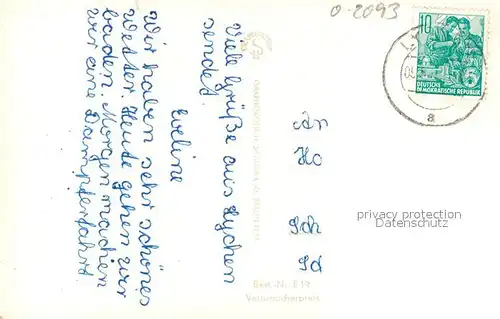 0-2093
10
DEUTSCHE
DEMOKRATISCHE REPUBLIK
a
Viele Grüße aus Lychen
sendet
Eveline
Wir haben sehr schönes
Wetter. Heute gehen wir
baden. Morgen machen
wir eine Dampferfahrt.
An
Ho
Sch
privacy protection
Datenschutz
Best.-Nr. E 19
Verbraucherpreis